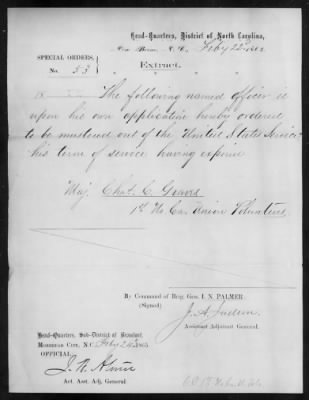 Head-Quarters, District of North Carolina,
New Berne, N. C., Feby 22d 186
SPECIAL ORDERS,
No. 53
Extract.
The following named officer is
upon his own application hereby ordered
to be mustered out of the United States Service
his term of service having expired
Maj. Chas. C. Graves
1st No Car. Union Volunteers
By Command of Brig. Gen. I. N. PALMER
(Signed) J. A. Judson
Assistant Adjutant General.
Head-Quarters, Sub-District of Beaufort,
MOREHEAD CITY, N.C. Feby 24 1865
OFFICIAL:
Act. Asst. Adj. General